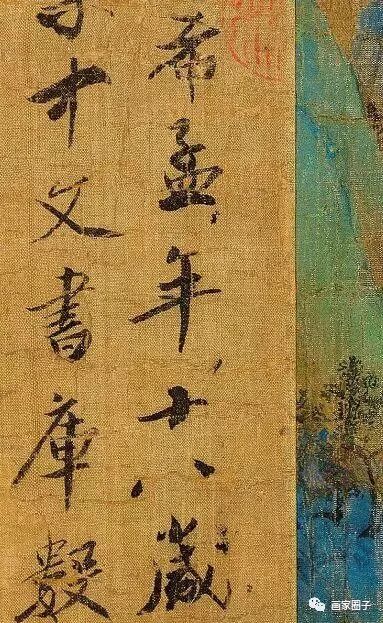 希孟年十八歲
中文書庫數
画家圈子